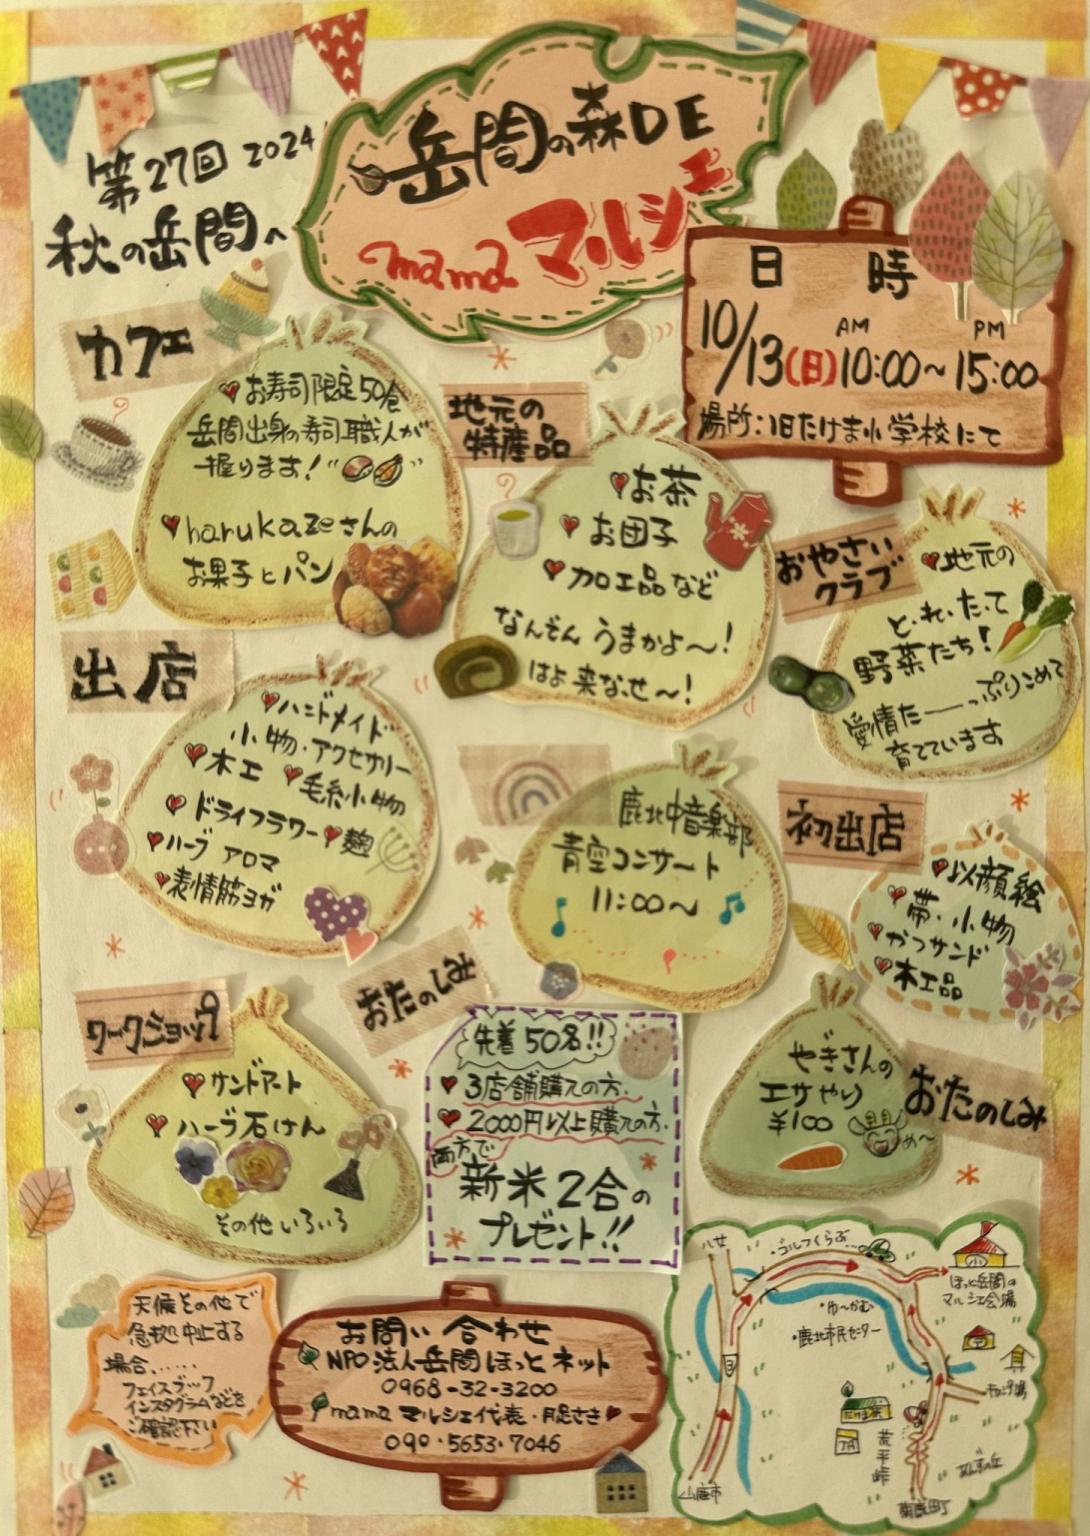 第27回 2024
秋の岳間へ
岳間の森DE
mama マルシェ
日 時
AM PM
10/13(日)10:00~15:00
場所:旧たけま小学校にて
カフェ
お寿司限定50食
岳間出身の寿司職人が
握ります!
harukazeさんの
お菓子とパン
地元の
特産品
お茶
お団子
加工品など
なんさん うまかよ~!
はよ来なっせ~!
おやさい
クラブ
地元の
とれたて
野菜たち!
愛情たーーっぷりこめて
育てています
出店
ハンドメイド
小物・アクセサリー
木工 毛糸小物
ドライフラワー 麹
ハーブ アロマ
表情筋ヨガ
鹿北中音楽部
青空コンサート
11:00~
初出店
似顔絵
帯・小物
かつサンド
木工品
ワークショップ
サンドアート
ハーブ石けん
その他いろいろ
おたのしみ
先着50名!!
3店舗購入の方.
2000円以上購入の方.
両方で
新米2合の
プレゼント!!
やぎさんの
エサやり
¥100
め~
おたのしみ
天候その他で
急拠中止する
場合......
フェイスブック
インスタグラムなどを
ご確認下さい
お問い合わせ
NPO法人岳間ほっとネット
0968-32-3200
mama マルシェ代表・
090・5653・7046
八女
・ゴルフくらぶ
小
ほっと岳間の
マルシェ会場
・ゆ~かむ
・鹿北市民センター
3
キャンプ場
JA
荒平峠
山鹿市
菊鹿町